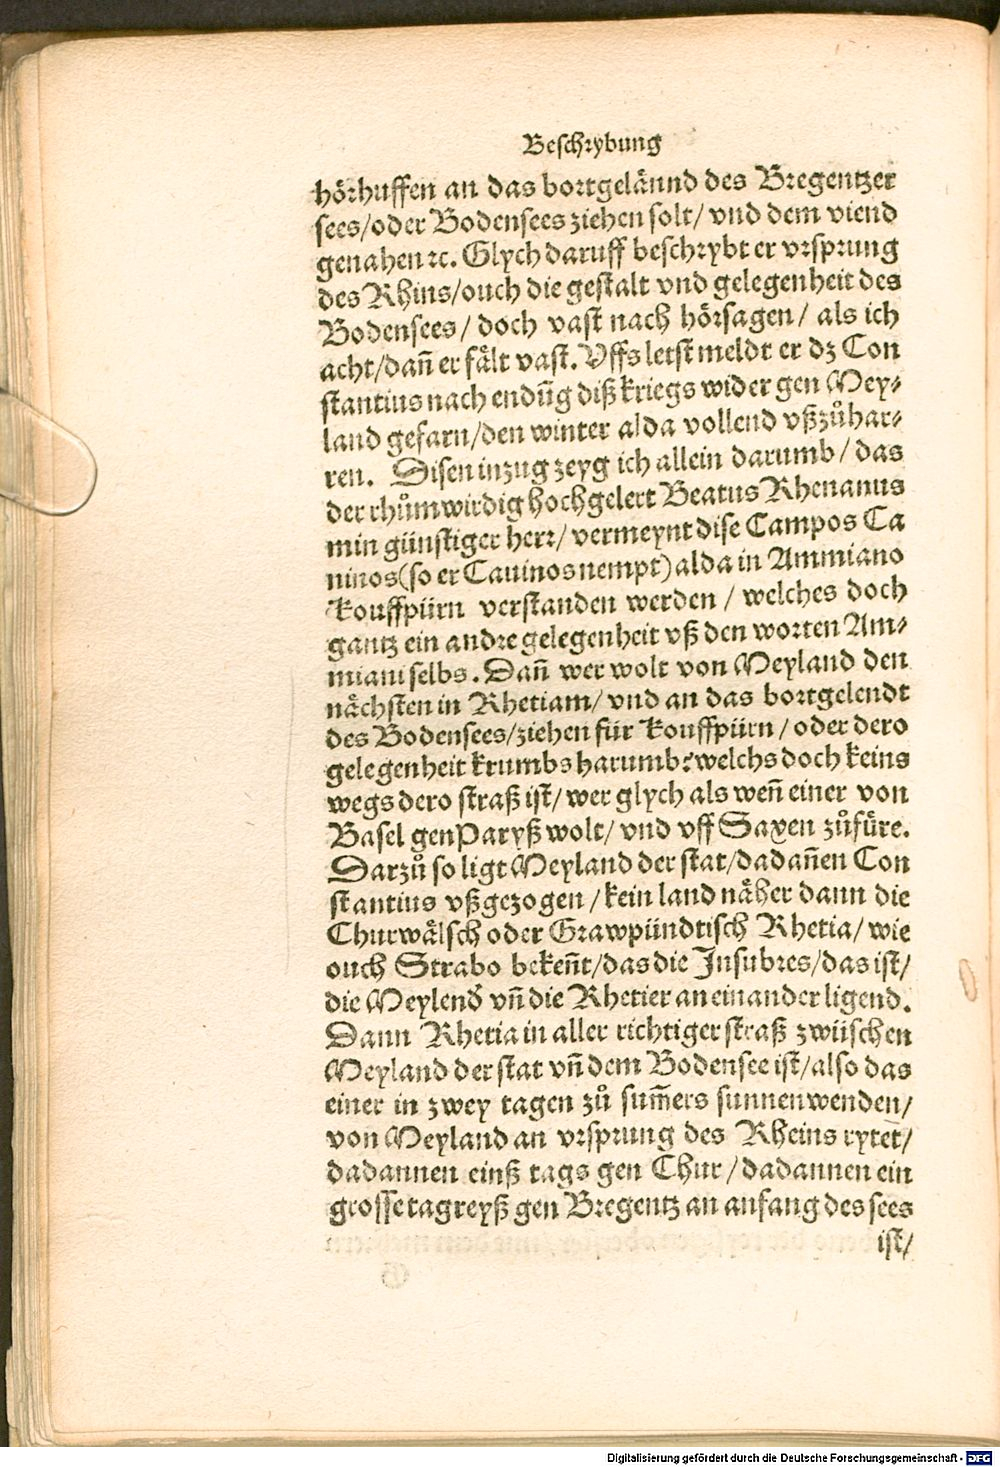 Beschrybung
hörhuffen an das bortgelännd des Bregentzer
sees/oder Bodensees ziehen solt/ vnd dem viend
genahen ꝛc. Glych daruff beschrybt er vrsprung
des Rhins/ouch die gestalt vnd gelegenheit des
Bodensees/ doch vast nach hörsagen/ als ich
acht/dañ er fält vast. Vffs letst meldt er dz Con
stantius nach endũg diß kriegs wider gen Mey⸗
land gefarn/den winter alda vollend vßzůhar⸗
ren. Disen inzug zeyg ich allein darumb/ das
der rhůmwirdig hochgelert Beatus Rhenanus
min günstiger herr/ vermeynt dise Campos Ca
ninos(so er Cauinos nempt) alda in Ammiano
Kouffpürn verstanden werden / welches doch
gantz ein andre gelegenheit vß den worten Am⸗
miani selbs. Dañ wer wolt von Meyland den
nächsten in Rhetiam/ vnd an das bortgelendt
des Bodensees/ziehen für Kouffpürn/ oder dero
gelegenheit krumbs harumb: welchs doch keins
wegs dero straß ist/ wer glych als weñ einer von
Basel gen Paryß wolt/ vnd vff Saxen zůfüre.
Darzů so ligt Meyland der stat/dadañen Con
stantius vßgezogen /kein land näher dann die
Churwälsch oder Grawpündtisch Rhetia/ wie
ouch Strabo bekeñt/das die Insubres/das ist/
die Meylend̕ vñ die Rhetier an einander ligend.
Dann Rhetia in aller richtiger straß zwüschen
Meyland der stat vñ dem Bodensee ist/also das
einer in zwey tagen zů sum̃ers sunnenwenden/
von Meyland an vrsprung des Rheins rytet/
dadannen einß tags gen Chur/dadannen ein
grosse tagreyß gen Bregentz an anfang des sees
ist/
Digitalisierung gefördert durch die Deutsche Forschungsgemeinschaft - DFG